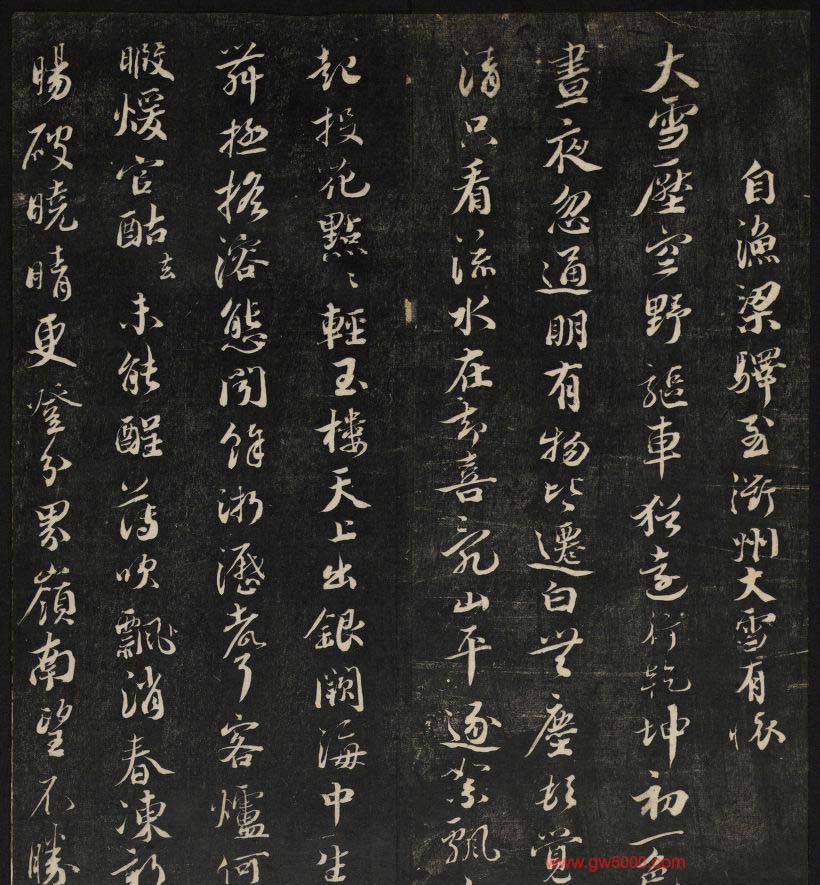 自漁梁驛至衢州大雪有懷
大雪壓空野驅車猶遠行乾坤初一色
晝夜忽通明有物皆遷白無塵頓覺
清只看流水在却喜亂山平逐絮飄
起投花點〻輕玉樓天上出銀闕海中生
舞極摇溶態聞餘淅瀝聲客爐何
暇煖官酤去未能醒薄吹飄消春凍新
暘破曉晴更登分界嶺南望不勝
www.gw5000.com